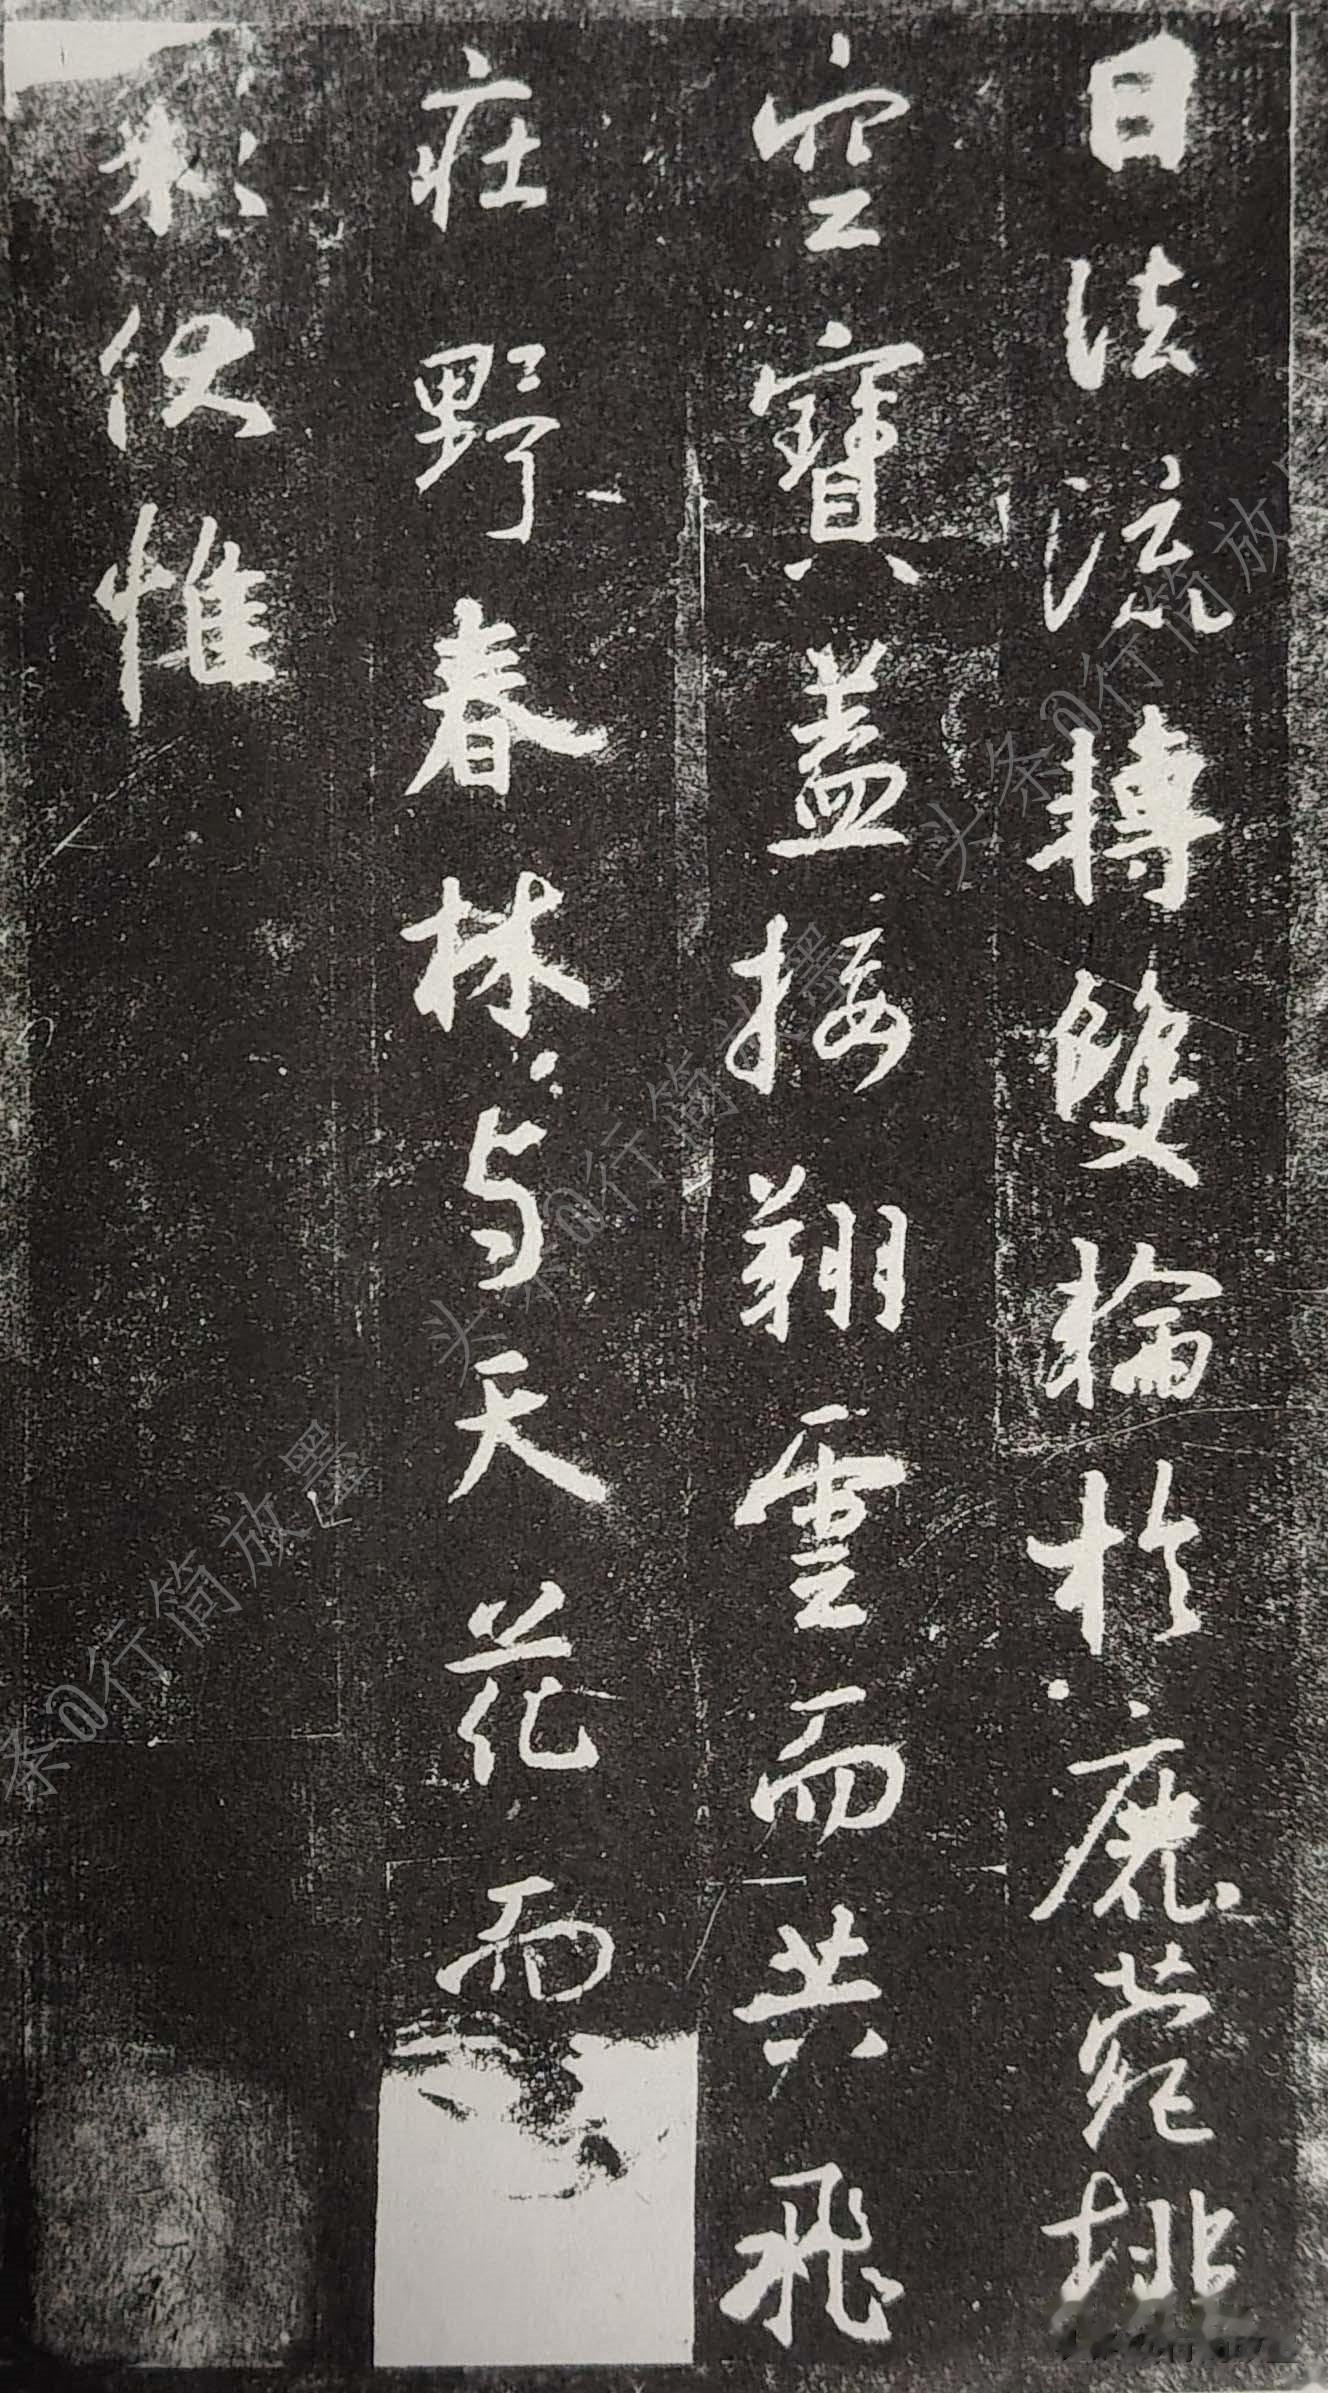 日法流轉雙輪於鹿菀排
空寶蓋接翔雲而共飛
莊野春林与天花而
彩伏惟
头条@行简放墨
头条@行简放墨
条@行简放墨